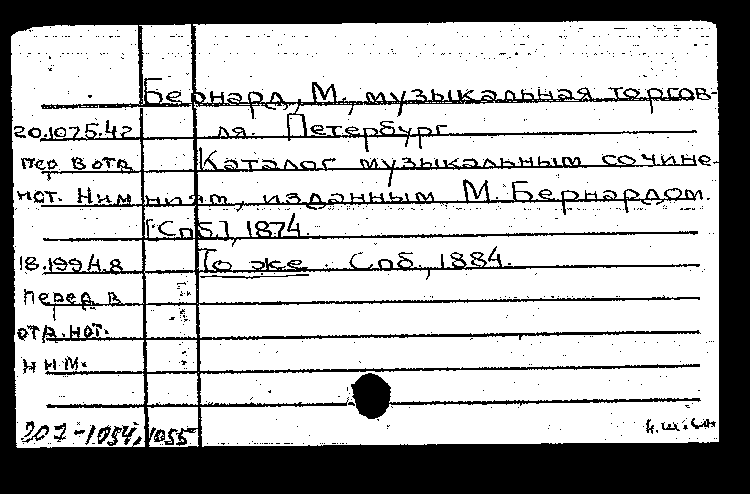 Бернард, М., музыкальная торгов-
20.1075.42 ля. Петербург
пер в отд Каталог музыкальным сочине-
нот. Ним ниям, изданным М. Бернардом.
[Спб.], 1874.
18.199.4.8 То же. Спб., 1884.
перед в
отд. нот.
н н м.
207-1054, 1055